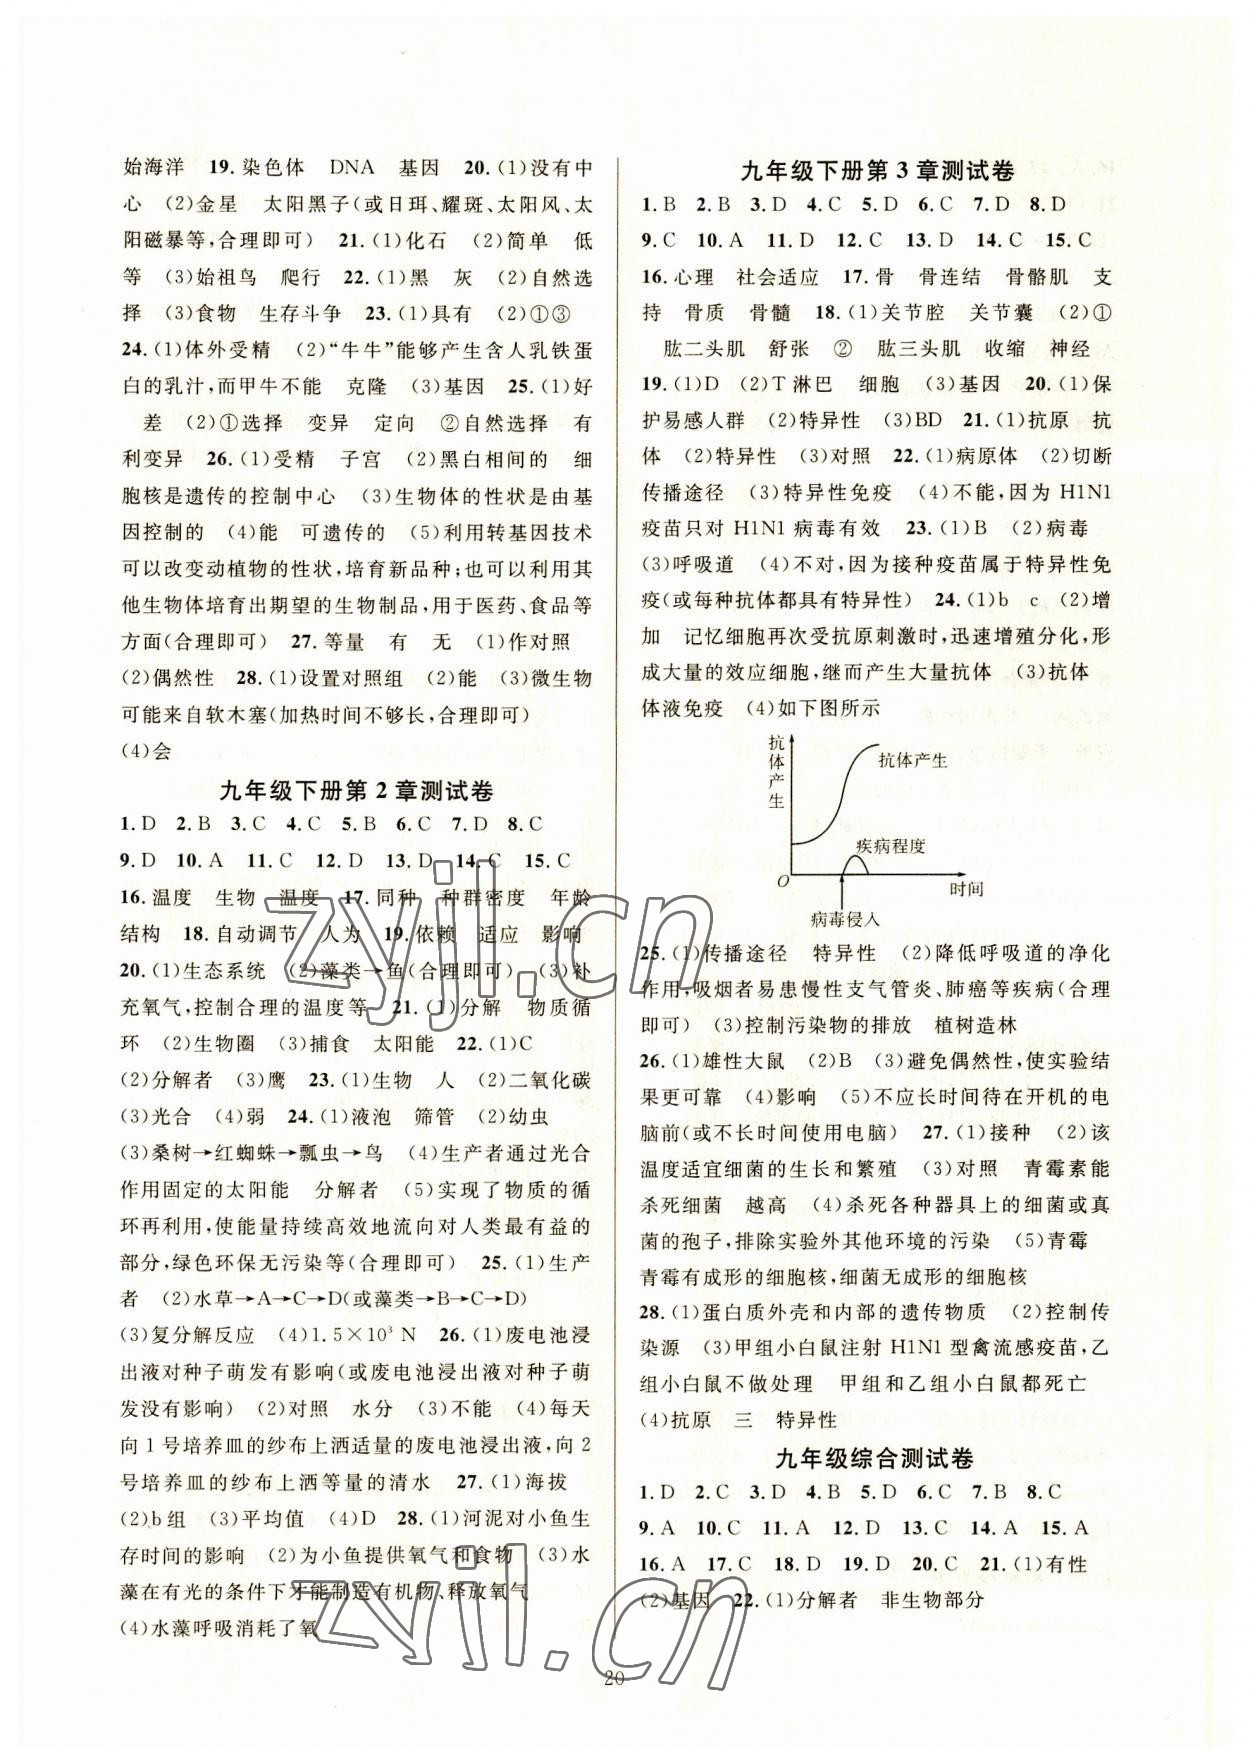 始海洋 19.染色体 DNA 基因 20.(1)没有中
心 (2)金星 太阳黑子(或日珥、耀斑、太阳风、太
阳磁暴等,合理即可) 21.(1)化石 (2)简单 低
等 (3)始祖鸟 爬行 22.(1)黑 灰 (2)自然选
择 (3)食物 生存斗争 23.(1)具有 (2)①③
24.(1)体外受精 (2)“牛牛”能够产生含人乳铁蛋
白的乳汁,而甲牛不能 克隆 (3)基因 25.(1)好
差 (2)①选择 变异 定向 ②自然选择 有
利变异 26.(1)受精 子宫 (2)黑白相间的 细
胞核是遗传的控制中心 (3)生物体的性状是由基
因控制的 (4)能 可遗传的 (5)利用转基因技术
可以改变动植物的性状,培育新品种;也可以利用其
他生物体培育出期望的生物制品,用于医药、食品等
方面(合理即可) 27.等量 有 无 (1)作对照
(2)偶然性 28.(1)设置对照组 (2)能 (3)微生物
可能来自软木塞(加热时间不够长,合理即可)
(4)会
九年级下册第2章测试卷
1.D 2.B 3.C 4.C 5.B 6.C 7.D 8.C
9.D 10.A 11.C 12.D 13.D 14.C 15.C
16.温度 生物 温度 17.同种 种群密度 年龄
结构 18.自动调节 人为 19.依赖 适应 影响
20.(1)生态系统 (2)藻类→鱼(合理即可) (3)补
充氧气,控制合理的温度等 21.(1)分解 物质循
环 (2)生物圈 (3)捕食 太阳能 22.(1)C
(2)分解者 (3)鹰 23.(1)生物 人 (2)二氧化碳
(3)光合 (4)弱 24.(1)液泡 筛管 (2)幼虫
(3)桑树→红蜘蛛→瓢虫→鸟 (4)生产者通过光合
作用固定的太阳能 分解者 (5)实现了物质的循
环再利用,使能量持续高效地流向对人类最有益的
部分,绿色环保无污染等(合理即可) 25.(1)生产
者 (2)水草→A→C→D(或藻类→B→C→D)
(3)复分解反应 (4)1.5×10³ N 26.(1)废电池浸
出液对种子萌发有影响(或废电池浸出液对种子萌
发没有影响) (2)对照 水分 (3)不能 (4)每天
向1号培养皿的纱布上洒适量的废电池浸出液,向2
号培养皿的纱布上洒等量的清水 27.(1)海拔
(2)b组 (3)平均值 (4)D 28.(1)河泥对小鱼生
存时间的影响 (2)为小鱼提供氧气和食物 (3)水
藻在有光的条件下才能制造有机物、释放氧气
(4)水藻呼吸消耗了氧
九年级下册第3章测试卷
1.B 2.B 3.D 4.C 5.D 6.C 7.D 8.D
9.C 10.A 11.D 12.C 13.D 14.C 15.C
16.心理 社会适应 17.骨 骨连结 骨骼肌 支
持 骨质 骨髓 18.(1)关节腔 关节囊 (2)①
肱二头肌 舒张 ② 肱三头肌 收缩 神经
19.(1)D (2)T淋巴 细胞 (3)基因 20.(1)保
护易感人群 (2)特异性 (3)BD 21.(1)抗原 抗
体 (2)特异性 (3)对照 22.(1)病原体 (2)切断
传播途径 (3)特异性免疫 (4)不能,因为H1N1
疫苗只对H1N1病毒有效 23.(1)B (2)病毒
(3)呼吸道 (4)不对,因为接种疫苗属于特异性免
疫(或每种抗体都具有特异性) 24.(1)b c (2)增
加 记忆细胞再次受抗原刺激时,迅速增殖分化,形
成大量的效应细胞,继而产生大量抗体 (3)抗体
体液免疫 (4)如下图所示
抗体产生
抗体产生
疾病程度
O
时间
病毒侵入
25.(1)传播途径 特异性 (2)降低呼吸道的净化
作用,吸烟者易患慢性支气管炎、肺癌等疾病(合理
即可) (3)控制污染物的排放 植树造林
26.(1)雄性大鼠 (2)B (3)避免偶然性,使实验结
果更可靠 (4)影响 (5)不应长时间待在开机的电
脑前(或不长时间使用电脑) 27.(1)接种 (2)该
温度适宜细菌的生长和繁殖 (3)对照 青霉素能
杀死细菌 越高 (4)杀死各种器具上的细菌或真
菌的孢子,排除实验外其他环境的污染 (5)青霉
青霉有成形的细胞核,细菌无成形的细胞核
28.(1)蛋白质外壳和内部的遗传物质 (2)控制传
染源 (3)甲组小白鼠注射H1N1型禽流感疫苗,乙
组小白鼠不做处理 甲组和乙组小白鼠都死亡
(4)抗原 三 特异性
九年级综合测试卷
1.D 2.C 3.D 4.B 5.C 6.C 7.B 8.C
9.A 10.C 11.A 12.D 13.C 14.A 15.A
16.A 17.C 18.D 19.D 20.C 21.(1)有性
(2)基因 22.(1)分解者 非生物部分
20
zyjl.cn
zyjl.cn